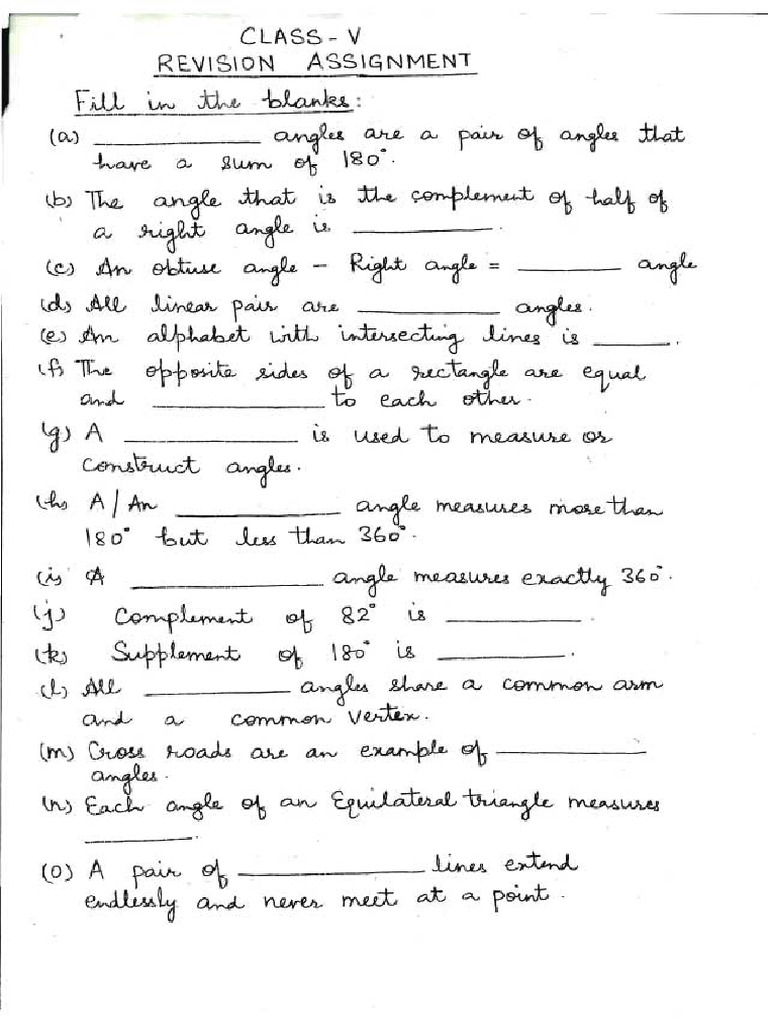 CLASS - V
REVISION ASSIGNMENT
Fill in the blanks:
(a) ____________ angles are a pair of angles that
have a sum of 180°.
(b) The angle that is the complement of half of
a right angle is __________.
(c) An obtuse angle - Right angle = ________ angle
(d) All linear pair are __________ angles.
(e) An alphabet with intersecting lines is ______.
(f) The opposite sides of a rectangle are equal
and ____________ to each other.
(g) A ____________ is used to measure or
construct angles.
(h) A/An ____________ angle measures more than
180° but less than 360°.
(i) A ______________ angle measures exactly 360°.
(j) Complement of 82° is __________.
(k) Supplement of 180° is _________.
(l) All __________ angles share a common arm
and a common vertex.
(m) Cross roads are an example of ___________
angles.
(n) Each angle of an Equilateral triangle measures
________.
(o) A pair of _____________ lines extend
endlessly and never meet at a point.